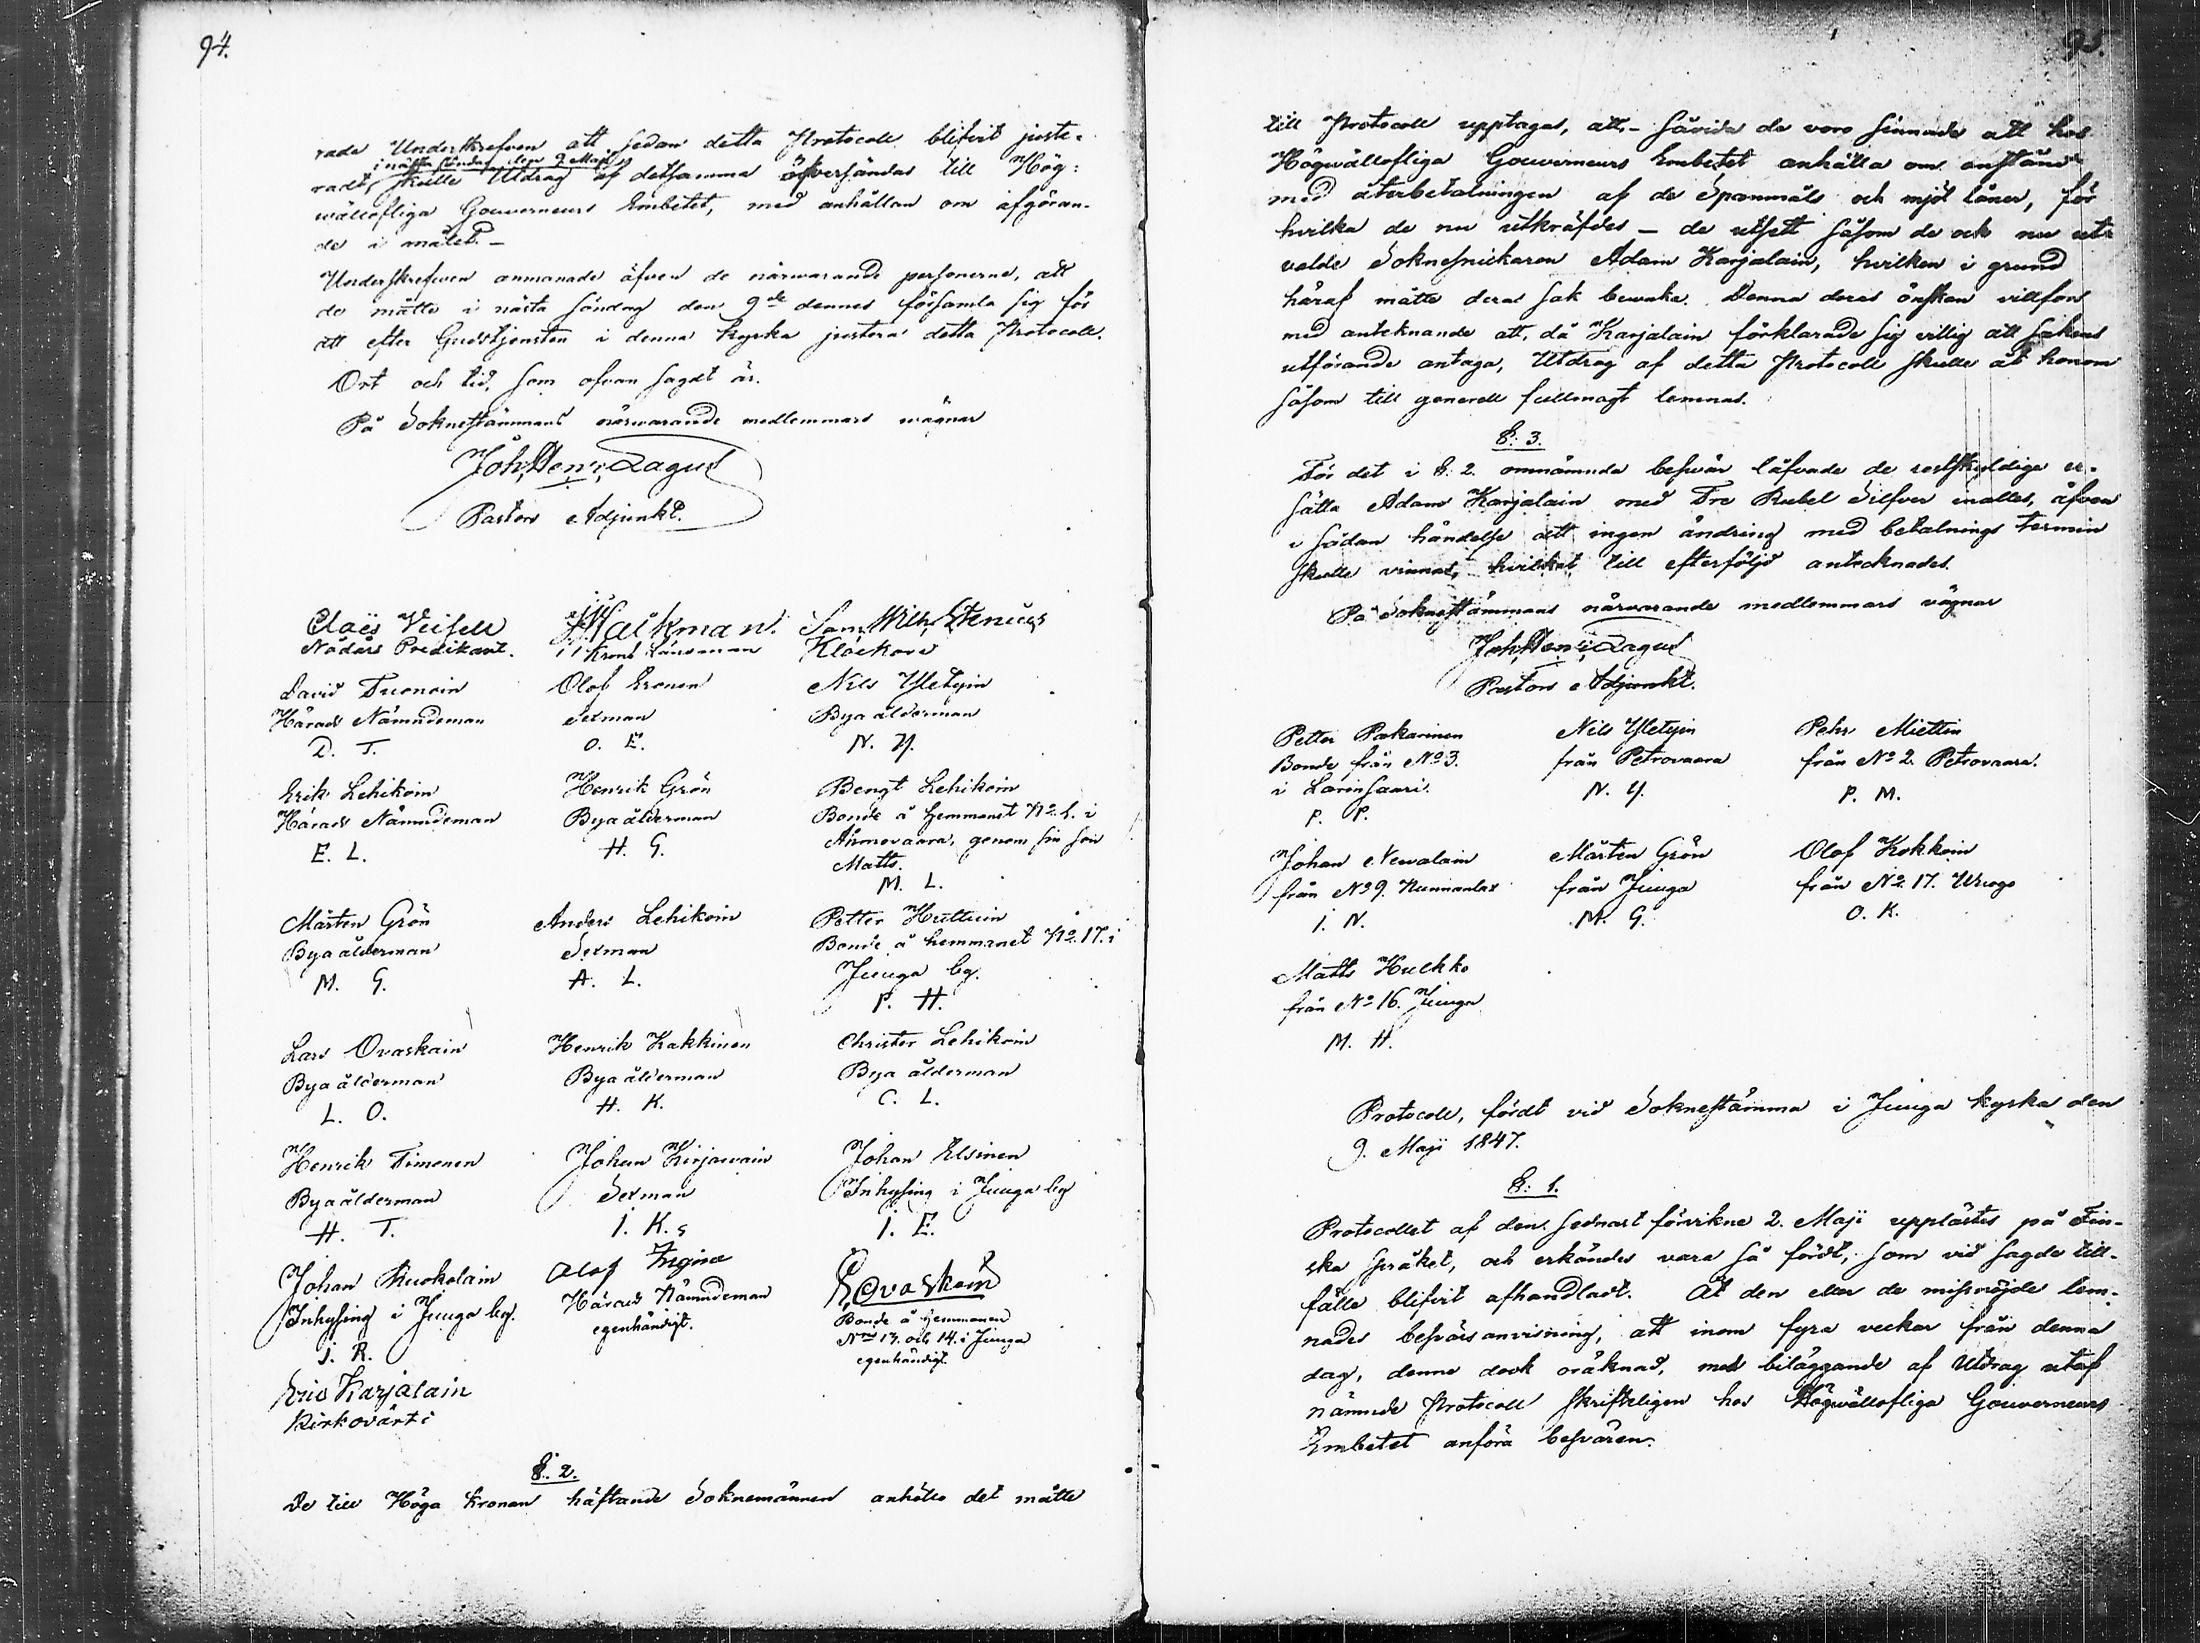 94.
rade Underskrefven att sedan detta Protocoll blifvit juste-
i nästa Söndag den 9 Maji
radt, skulle Utdrag af detsamma öfversändas till Hög-
wällofliga Gouverneurs Embetet, med anhållan om afgöran-
de i målet. -
Underskrefven anmanade äfven de närwarande personerne, att
de måtte i nästa Söndag den 9de dennes församla sig för
att efter Gudstjensten i denna kyrka justera detta Protocoll.
Ort och tid, som ofvan sagdt är.
På Soknestämmans närwarande medlemmars wägnar
Joh. Henr. Zagus
Pastors Adjunkt.
Claës Veisell
Nådårs Predikant.
Walkman.
Krons Länsman
Sam. Wilh. Stenius
Klockare
David Tuonoin
Härads Nämndeman
D. T.
Olof Eronen
Sexman
O. E.
Nils Yletyin
Bya ålderman
N. Y.
Erik Lehikoin
Härads Nämndeman
E. L.
Henrik Grön
Bya ålderman
H. G.
Bengt Lehikoin
Bonde å Hemmanet No 1. i
Ahmovaara, genom sin son
Matts.
M. L.
Mårten Grön
Bya ålderman
M. G.
Anders Lehikoin
Sexman
A. L.
Petter Huttuin
Bonde å hemmanet No 17. i
Juuga by.
P. H.
Lars Ovaskain
Bya ålderman
L. O.
Henrik Kakkinen
Bya ålderman
H. K.
Christer Lehikoin
Bya ålderman
C. L.
Henrik Timonen
Bya ålderman
H. T.
Johan Kirjawain
Sexman
I. K.
Johan Elsinen
Inhysing i Juuga by
I. E.
Johan Ruokolain
Inhysing i Juuga by.
J. R.
Olof
Härads Nämndeman
egenhändigt.
Ovaskain
Bonde å Hemmanen
No 13. och 14. i Juuga
egenhändigt.
Eric Karjalain
Kirkovärti
§. 2.
De till Höga Kronan häftande Soknemännen anhöllo det måtte
95.
till Protocoll upptagas, att, - såvida de voro sinnade att hos
Högwällofliga Gouverneurs Embetet anhålla om anstånd
med återbetalningen af de Spannmåls och mjöl låner, för
hvilka de nu utkräfdes - de utsett såsom de ock nu ut-
valde Soknesnickaren Adam Karjalain, hvilken i grund
häraf måtte deras sak bewaka. Denna deras önskan villfors
med anteknande att, då Karjalain förklarade sig villig att sakens
utförande antaga, Utdrag af detta Protocoll skulle åt honom
såsom till generell fullmagt lemnas.
§. 3.
För det i §. 2. omnämnda besvär låfvade de restskyldige er-
sätta Adam Karjalain med Tre Rubel Silfver inalles, äfven
i sådan händelse att ingen ändring med betalnings termin
skulle vinnas, hvilket till efterföljd antecknades.
På Soknestämmans närvarande medlemmars vägnar
Joh. Henr. Zagus
Pastors Adjunkt.
Petter Pakarinen
Bonde från No 3.
i Larinsaari.
P. P.
Nils Yletyin
från Petrovaara
N. Y.
Pehr Miettin
från No 2. Petrovaara.
P. M.
Johan Nevalain
från No 9. Nunnanlax
I. N.
Mårten Grön
från Juuga
M. G.
Olof Kokkoin
från No 17.
O. K.
Matts Hulkko
från No 16. Juuga
M. H.
Protocoll, fördt vid Soknestämma i Juuga kyrka den
9. Maji 1847.
§. 1.
Protocollet af den sednast förvikne 2. Maji upplästes på Fin-
ska språket, och erkändes vara så fördt, som vid sagde till-
fälle blifvit afhandladt. Åt den eller de missnöjde lem-
nades besvärsanvisning, att inom fyra veckor från denna
dag, denne dock oräknad, med biläggande af Utdrag utaf
nämnde Protocoll skrifteligen hos Högwällofliga Gouverneurs
Embetet anföra besvären.